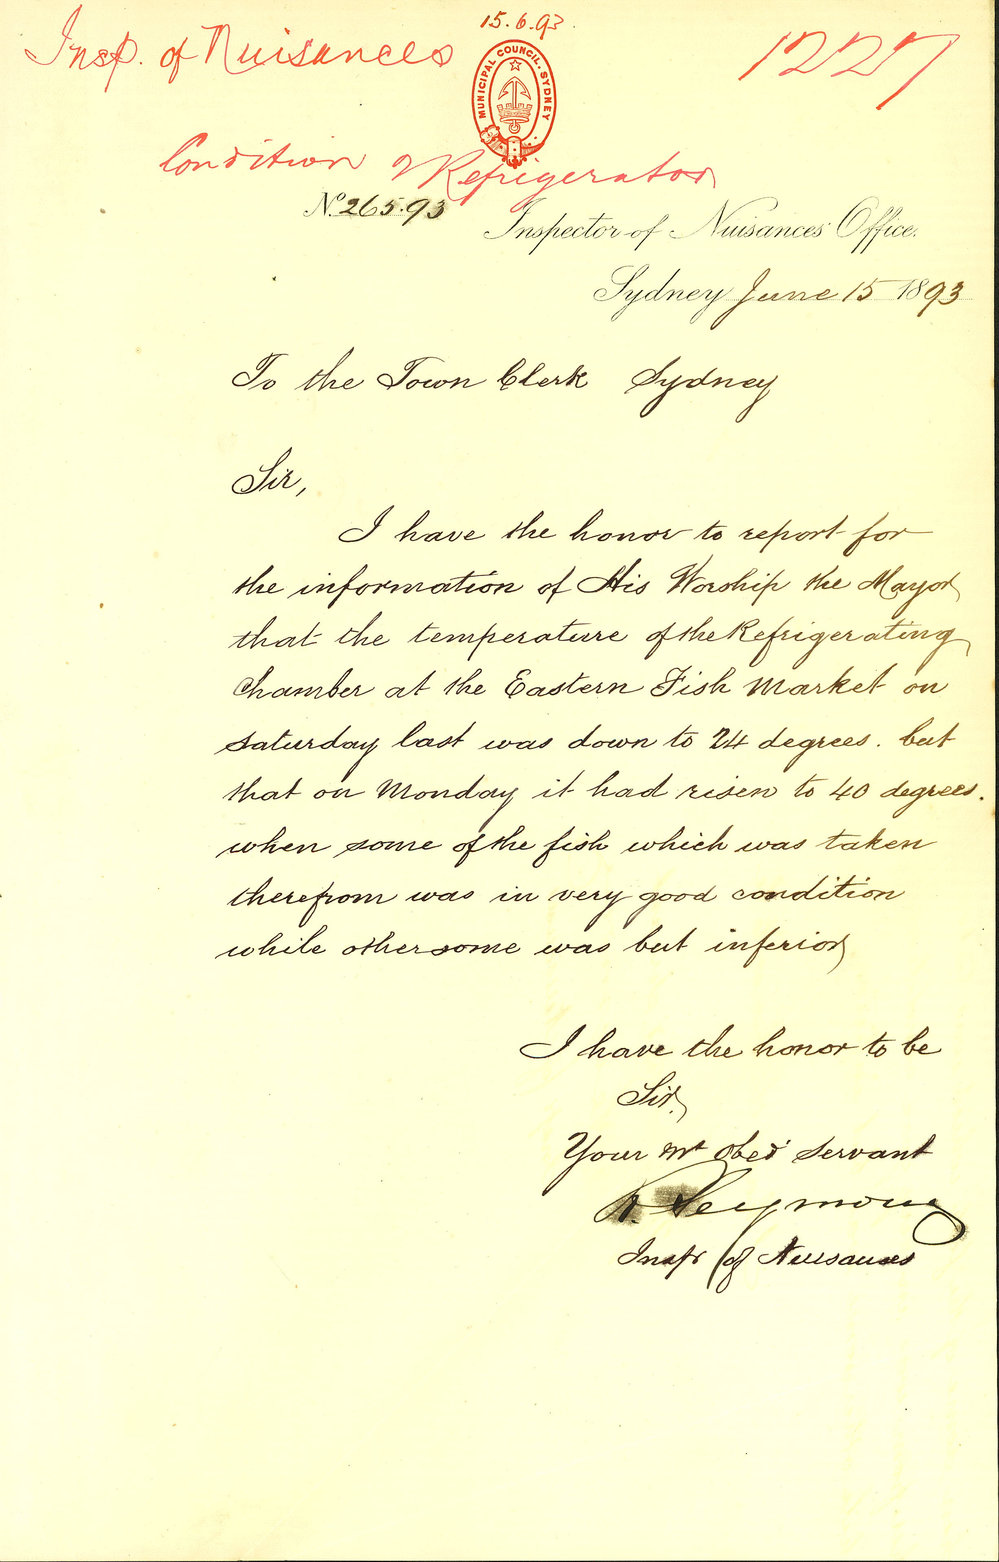 15.6.93.
Insp. of Nuisances
1227
MUNICIPAL COUNCIL. SYDNEY
Condition of Refrigerator
No. 265.93
Inspector of Nuisances Office.
Sydney June 15 1893
To the Town Clerk Sydney
Sir,
I have the honor to report for
the information of His Worship the Mayor
that the temperature of the Refrigerating
Chamber at the Eastern Fish Market on
Saturday last was down to 24 degrees. but
that on Monday it had risen to 40 degrees.
when some of the fish which was taken
therefrom was in very good condition
while other some was but inferior
I have the honor to be
Sir,
Your Mt Obed servant
R. Seymour
Inspr of Nuisances